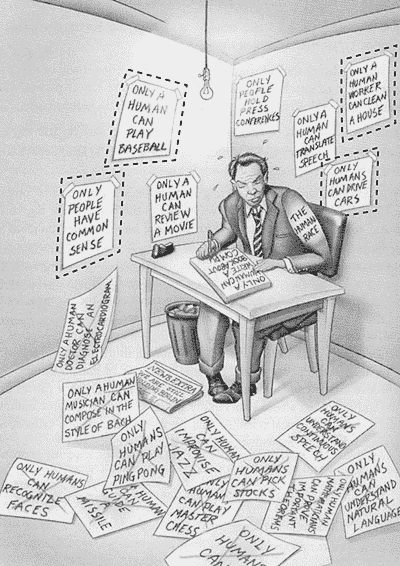 ONLY A
HUMAN
CAN
PLAY
BASEBALL
ONLY
PEOPLE
HOLD
PRESS
CONFERENCES
ONLY A
HUMAN
WORKER
CAN CLEAN
A HOUSE
ONLY A
HUMAN
CAN
TRANSLATE
SPEECH
ONLY
HUMANS
CAN DRIVE
CARS
ONLY
PEOPLE
HAVE
COMMON
SENSE
ONLY A
HUMAN
CAN
REVIEW
A MOVIE
THE
HUMAN
RACE
ONLY A
HUMAN CAN
WRITE A
BOOK ABOUT
ONLY A HUMAN
DOCTOR CAN
DIAGNOSE AN
ELECTROCARDIOGRAM
ONLY A HUMAN
MUSICIAN CAN
COMPOSE IN THE
STYLE OF BACH
ONLY
HUMANS
CAN PLAY
PING PONG
ONLY HUMANS
CAN
IMPROVISE
JAZZ
ONLY
HUMANS CAN
UNDERSTAND
CONTINUOUS
SPEECH
ONLY HUMANS
CAN
RECOGNIZE
FACES
HUMAN
CAN
GUIDE
A
MISSILE
HUMANS
CAN PLAY
MASTER
CHESS
ONLY
HUMANS
CAN PICK
STOCKS
ONLY HUMAN
MATHEMATICIANS
CAN PROVE
IMPORTANT
THEOREMS
ONLY
HUMANS CAN
UNDERSTAND
NATURAL
LANGUAGE
ONLY
HUMANS
CAN